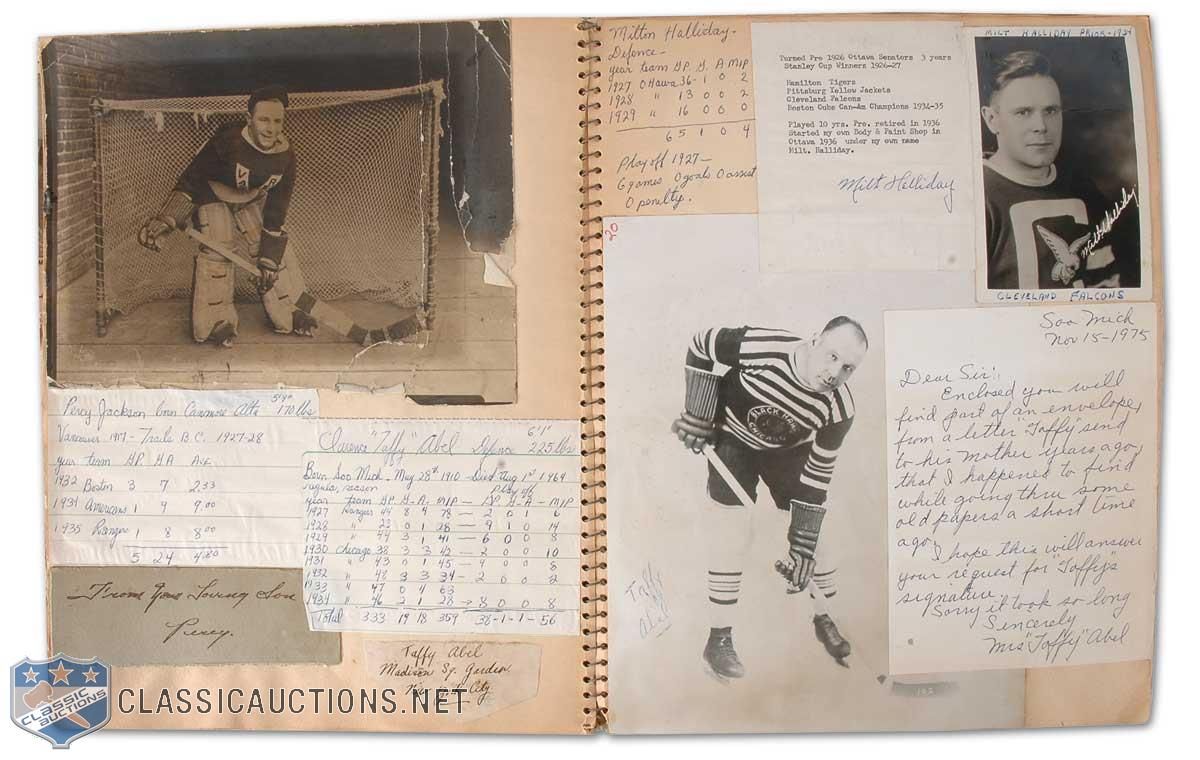 Percy Jackson born Canmore Alta 5'9" 170 lbs
Vancouver Trails B.C. 1927-28
year team G.P. G.A Ave
1932 Boston 3 7 2.33
1934 Americans 1 9 9.00
1935 Rangers 1 8 8.00
5 24 4.80
From Your Loving Son
Percy.
Clarence "Taffy" Abel Defence 6'1" 225 lbs
Born Soo Mich. May 28th 1910 - Died Aug 1st 1964
regular season Playoffs
year team G.P. G-A. MIP - G.P. G-A-MIP
1927 Rangers 44 8 4 78 - 2 0 1 6
1928 " 23 0 1 28 - 9 1 0 14
1929 " 44 3 1 41 - 6 0 0 8
1930 Chicago 38 3 3 42 - 2 0 0 10
1931 " 43 0 1 45 - 9 0 0 8
1932 " 48 3 3 34 - 2 0 0 2
1933 " 47 0 4 63
1934 " 46 2 1 28 → 8 0 0 8
Total 333 19 18 359 38-1-1-56
Taffy Abel
Madison Sq. Garden
New York City
CLASSIC AUCTIONS
CLASSICAUCTIONS.NET
Milton Halliday-
Defence-
year team G.P. G. A MIP
1927 Ottawa 36- 1 0 2
1928 " 13 0 0 2
1929 " 16 0 0 0
65 1 0 4
Playoff 1927-
6 games 0 goals 0 assist
0 penalty.
Turned Pro 1926 Ottawa Senators 3 years
Stanley Cup Winners 1926-27
Hamilton Tigers
Pittsburg Yellow Jackets
Cleveland Falcons
Boston Cubs Can-Am Champions 1934-35
Played 10 yrs. Pro. retired in 1936
Started my own Body & Paint Shop in
Ottawa 1936 under my own name
Milt. Halliday.
Milt Halliday
MILT HALLIDAY PRIOR-1934
Milt Halliday
CLEVELAND FALCONS
20
BLACK HAWKS
CHICAGO
Taffy
Abel
102
Soo Mich
Nov 15-1975
Dear Sir:
Enclosed you will
find part of an envelope,
from a letter "Taffy" send
to his Mother years ago,
that I happened to find
while going thru some
old papers a short time
ago.
I hope this will answer
your request for "Taffy's
signature.
Sorry it took so long
Sincerely
Mrs "Taffy" Abel